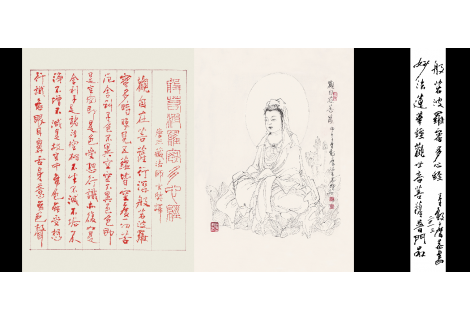 般若波羅蜜多心經
妙法蓮華經觀世音菩薩普門品
般若波羅蜜多心經
唐三藏法師玄奘譯
觀自在菩薩行深般若波羅
蜜多時照見五蘊皆空度一切苦
厄舍利子色不異空空不異色色即
是空空即是色受想行識亦復如是
舍利子是諸法空相不生不滅不垢不
淨不增不減是故空中無色無受想
行識無眼耳鼻舌身意無色聲